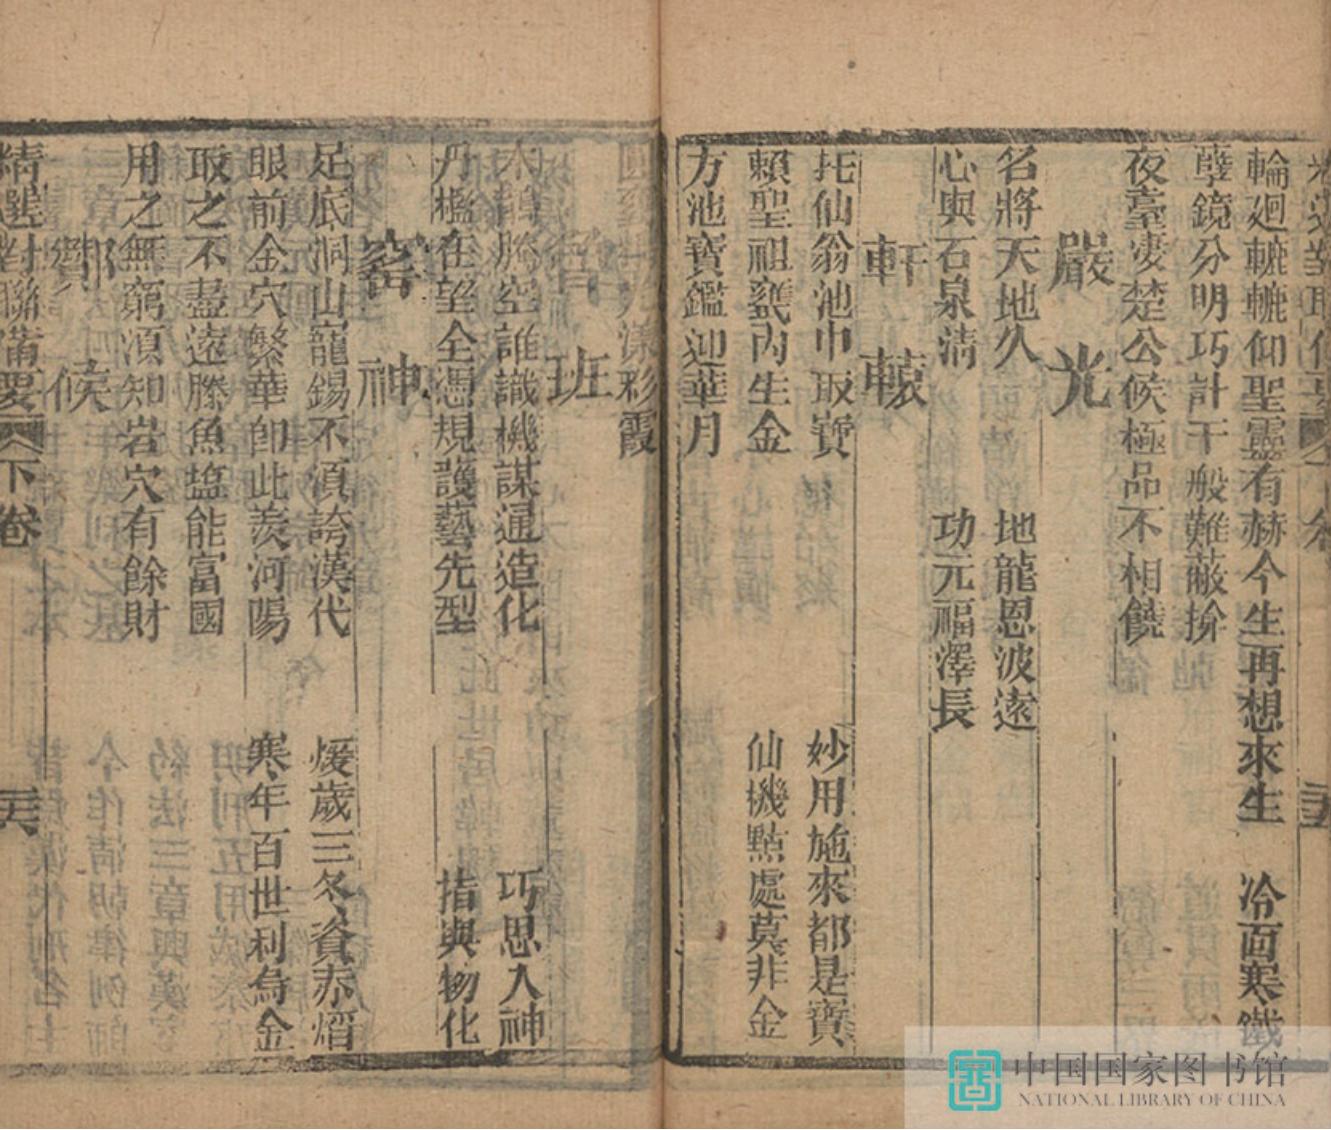 輪廻轆轆仰聖靈有赫今生再想來生　冷面寒鐵
孽鏡分明巧計千般難蔽揜
夜臺凄楚公候極品不相饒
嚴光
名將天地久　地龍恩波遠
心與石泉清　功元福澤長
軒轅
托仙翁池中取寶　妙用施來都是寶
賴聖祖甕內生金　仙機點處莫非金
方池寶鑑迎華月
彩霞
班
木鵲騰空誰識機謀通造化　巧思入神
丹楹在望全憑規護藝先型　指與物化
窑神
足底洞山寵錫不湏誇漢代　煖歲三冬資赤熖
眼前金穴繁華卽此羨河陽　寒年百世利烏金
取之不盡遠勝魚塩能富國
用之無窮湏知岩穴有餘財
酇候
精選對聯備要　下卷　二六
中国国家图书馆
NATIONAL LIBRARY OF CHINA